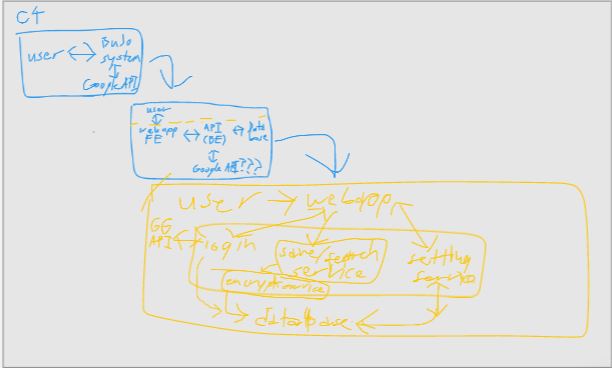 C4
user
BuJo
system
Google API
user
web app
FE
API
(BE)
Data
base
Google API???
user
webapp
GG
API
login
save/search
service
setting
service
encrypt service
database